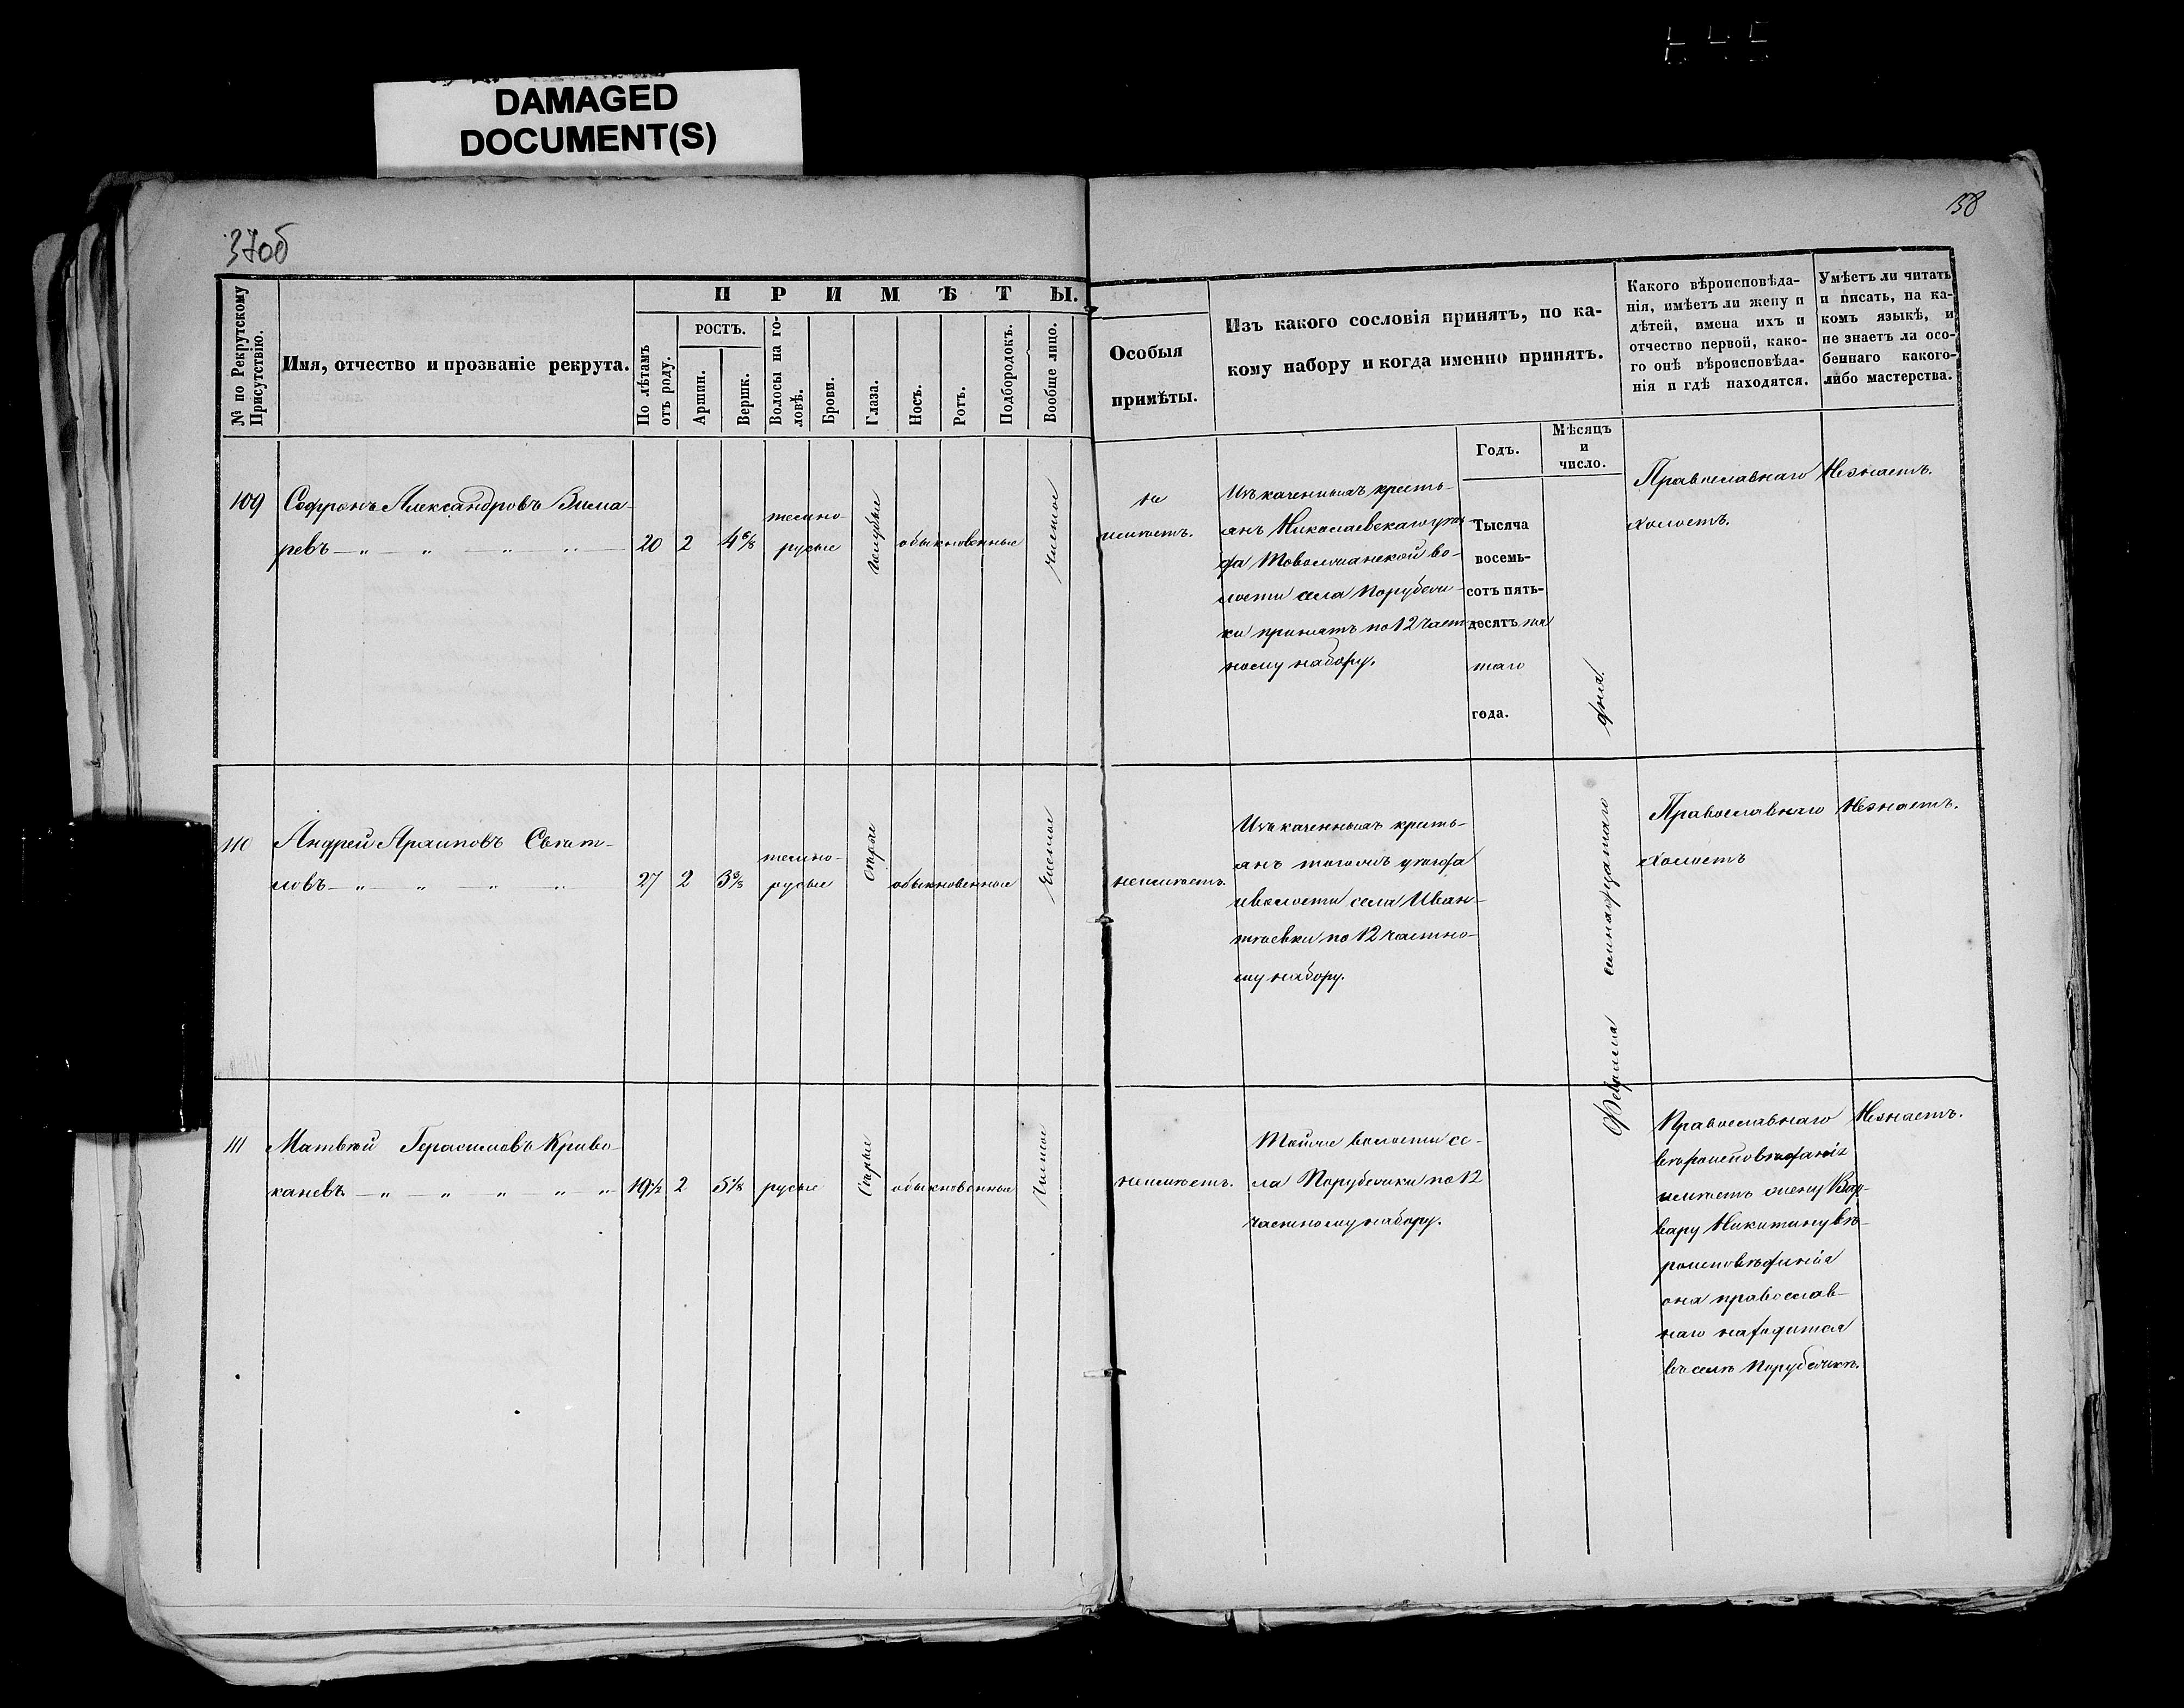 DAMAGED
DOCUMENT(S)
37об
158
№ по Рекрутскому
Присутствію.
Имя, отчество и прозваніе рекрута.
П Р И М Ѣ Т Ы.
По лѣтамъ
отъ роду.
РОСТЪ.
Аршин.
Вершк.
Волосы на го-
ловѣ.
Брови.
Глаза.
Носъ.
Ротъ.
Подбородокъ.
Вообще лицо.
Особыя
примѣты.
Изъ какого сословія принятъ, по ка-
кому набору и когда именно принятъ.
Годъ.
Мѣсяцъ
и
число.
Какого вѣроисповѣда-
нія, имѣетъ ли жену и
дѣтей, имена ихъ и
отчество первой, како-
го онѣ вѣроисповѣда-
нія и гдѣ находятся.
Умѣетъ ли читать
и писать, на ка-
комъ языкѣ, и
не знаетъ ли осо-
беннаго какого-
либо мастерства.
109
Софронъ Александровъ
ревъ — „ — „ — „ — „ —
20
2
4 6/8
темно-
русые
голубые
обыкновенные
чистое
не
имѣетъ.
Изъ казенныхъ кресть-
янъ Николаевскаго уѣз-
да волости села Порубежки
принятъ по 12 част-
ному набору.
Тысяча
восемь-
сотъ пять-
десятъ пя
таго
года.
Февраля семнадцатаго дня.
Православнаго
холостъ.
Незнаетъ.
110
Андрей Архиповъ
ловъ — „ — „ — „ — „
27
2
3 3/8
темно-
русые
сѣрые
обыкновенные
чистое
неимѣетъ.
Изъ казенныхъ кресть-
янъ тогожъ уѣзда
иволости села Иван-
тѣевки по 12 частно-
му набору.
Православнаго
холостъ
Незнаетъ.
111
Матвѣй Герасимовъ Криво-
каневъ — „ — „ — „ — „ — „
19 1/2
2
5 1/8
русые
Сѣрые
обыкновенные
Чистое
неимѣетъ.
Тойже волости се-
ла Порубежки по 12
частному набору.
Православнаго
вѣроисповѣданія
имѣетъ жену Вар-
вару Никитину вѣ-
роисповѣданія
она православ-
наго находится
въ селѣ Порубежкѣ.
Незнаетъ.